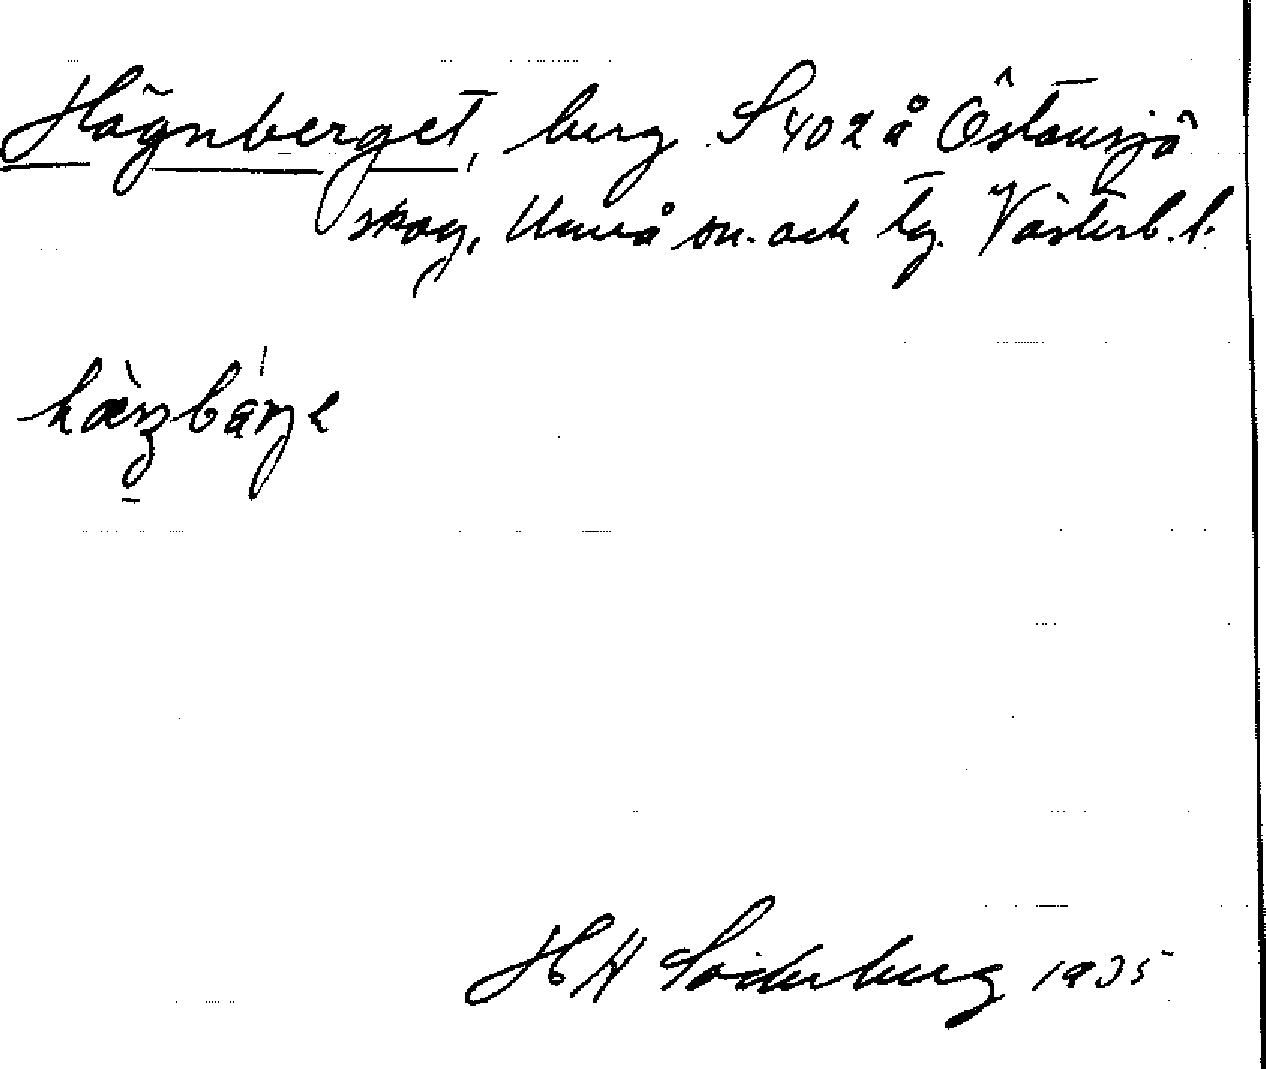 Hägnberget, berg S 402 å Östansjö
skog, Umeå sn. och tg. Västerb. l.
hæ̀ŋbárjɛ
HH Söderberg 1935